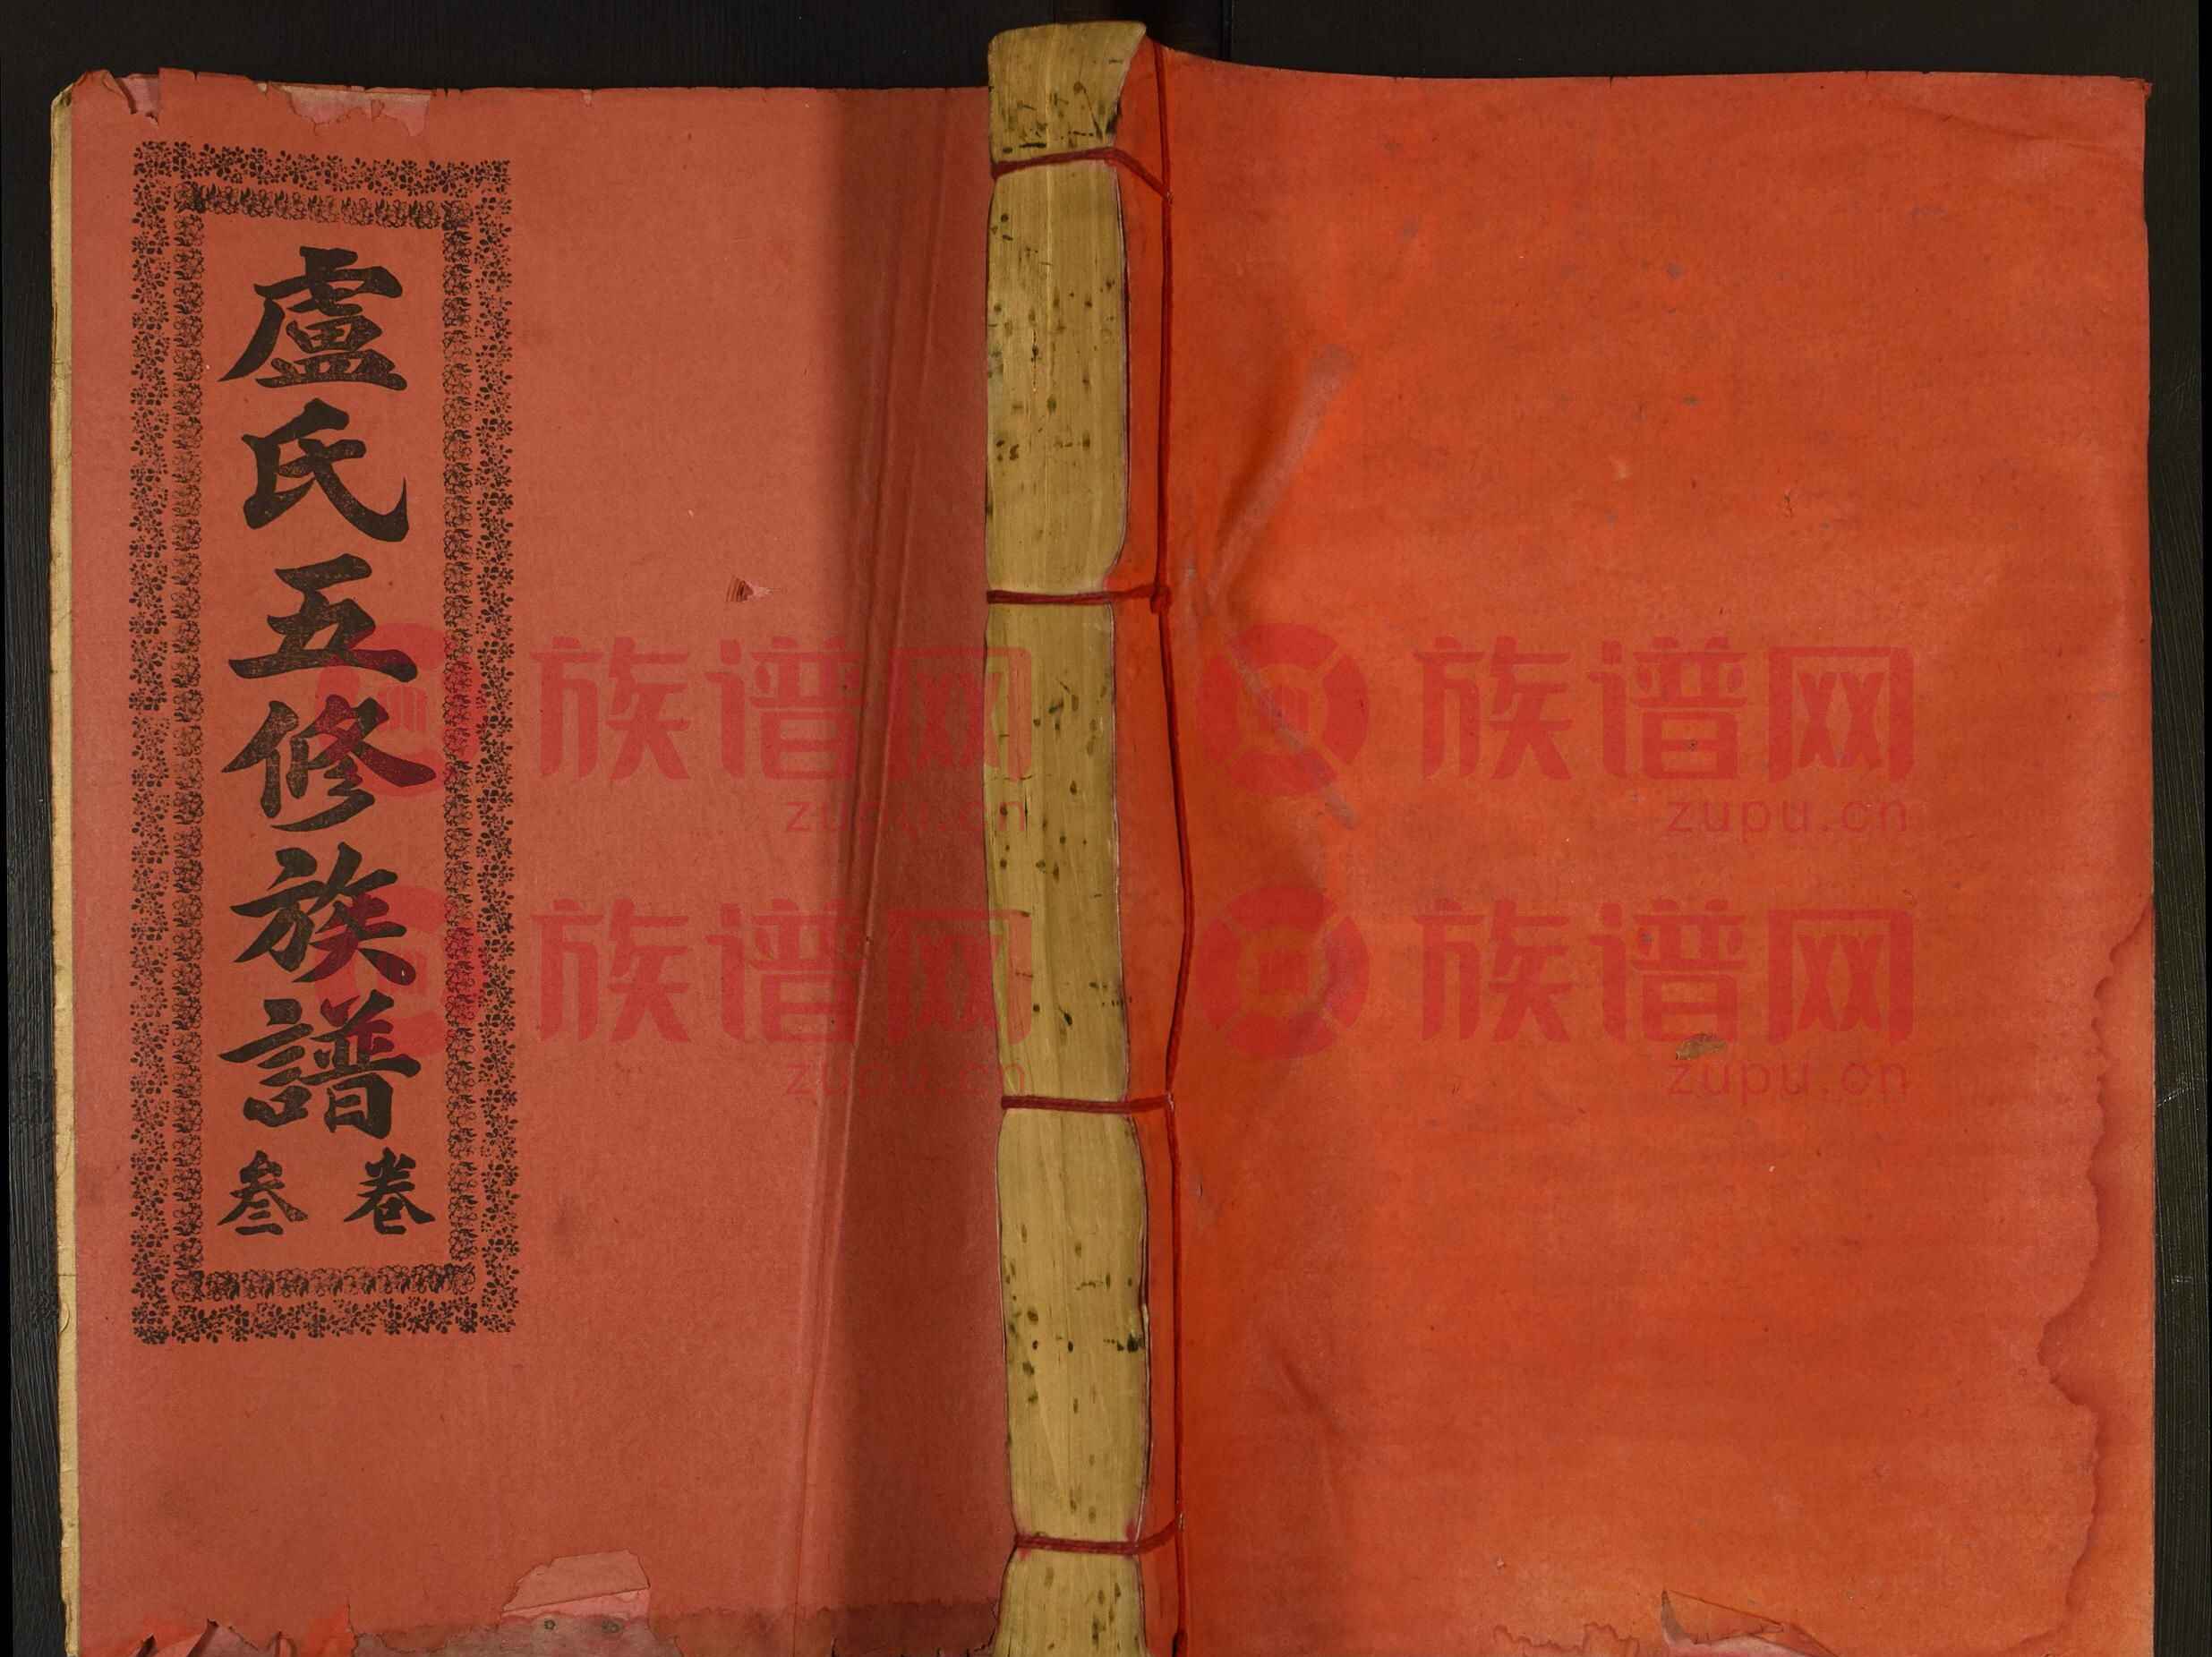 盧氏五修族譜
卷
叁
族谱网
zupu.cn
族谱网
zupu.cn
族谱网
zupu.cn
族谱网
zupu.cn